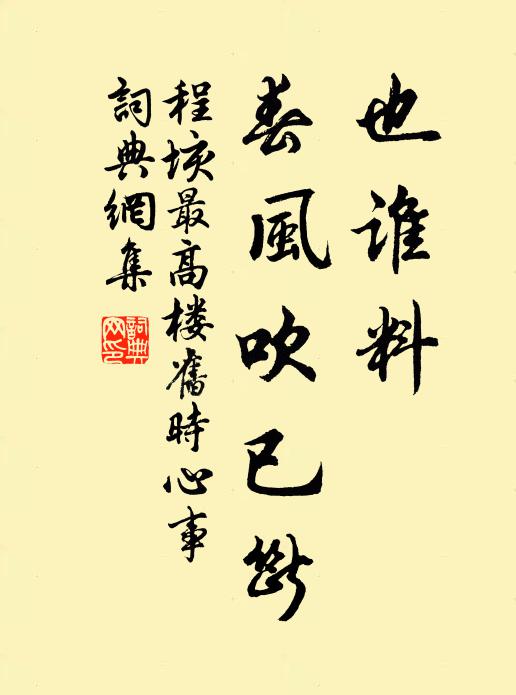 也谁料
春風吹已斷
程垓最高楼舊時心事
詞典網集
詞典網印